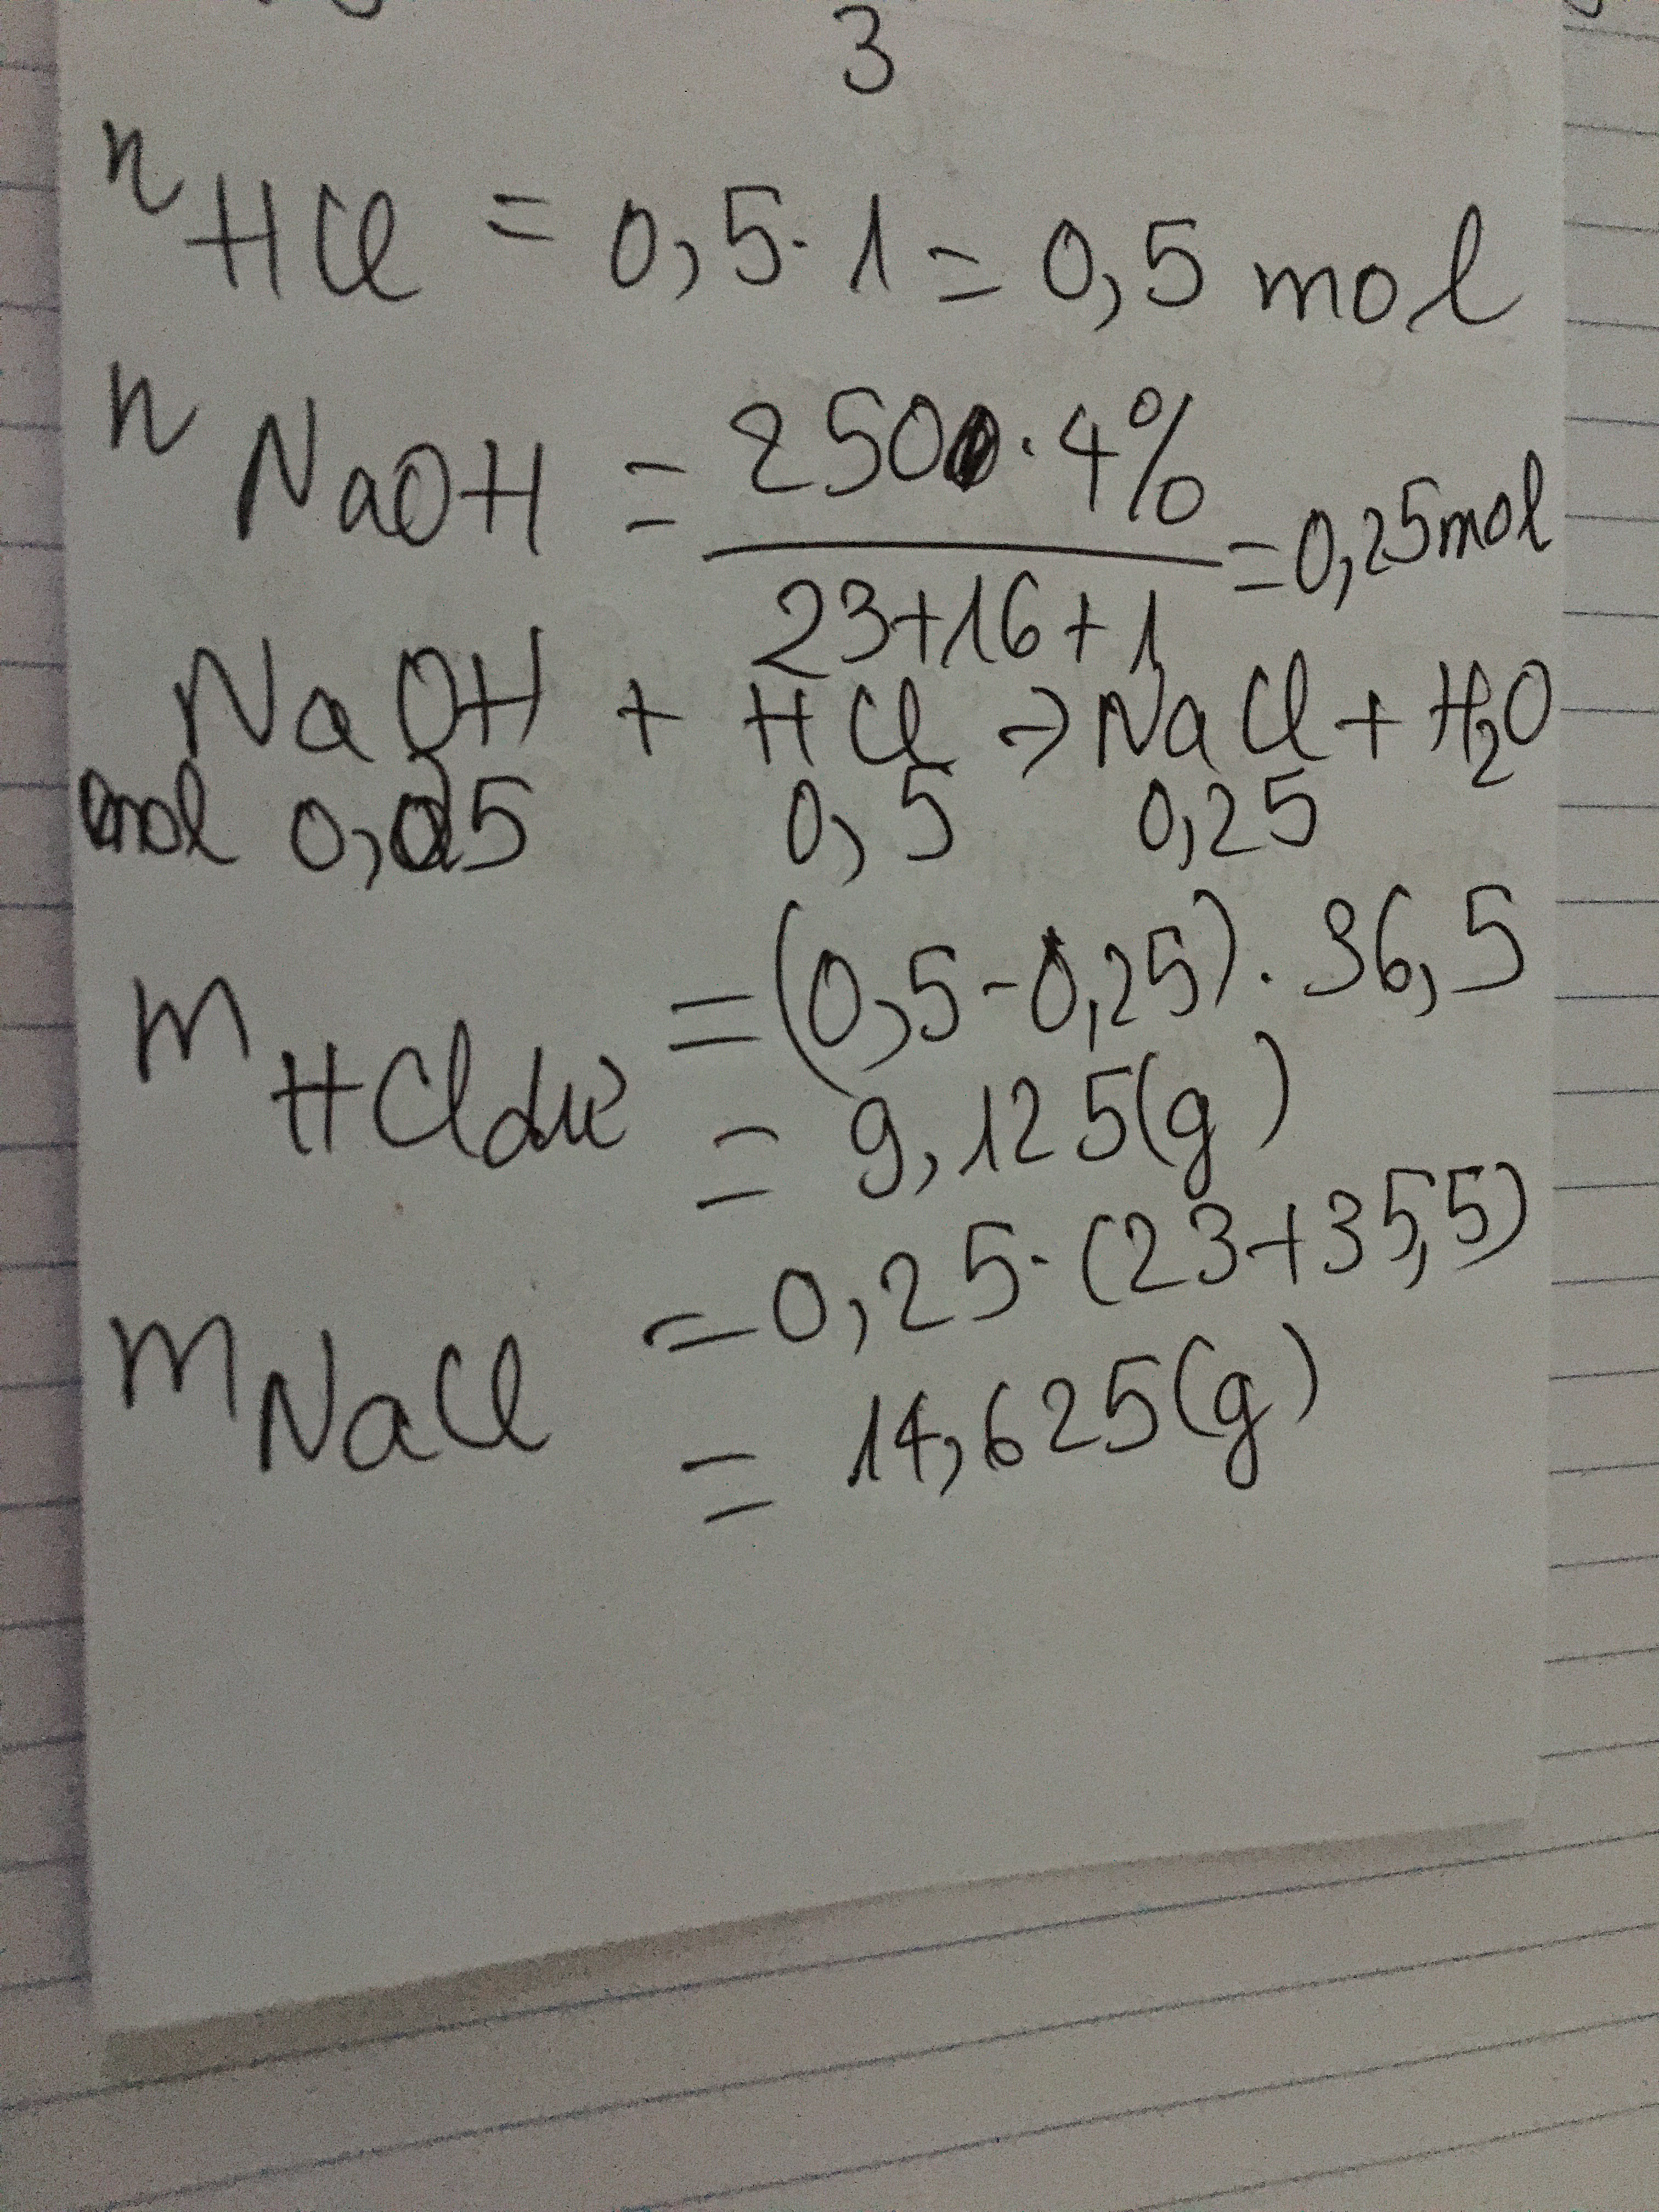 3
n HCl = 0,5 · 1 = 0,5 mol
n NaOH = 250 · 4% / 23+16+1 = 0,25mol
NaOH + HCl → NaCl + H₂O
mol 0,25 0,5 0,25
m HCl dư = (0,5-0,25) · 36,5
= 9,125(g)
m NaCl = 0,25 · (23+35,5)
= 14,625(g)